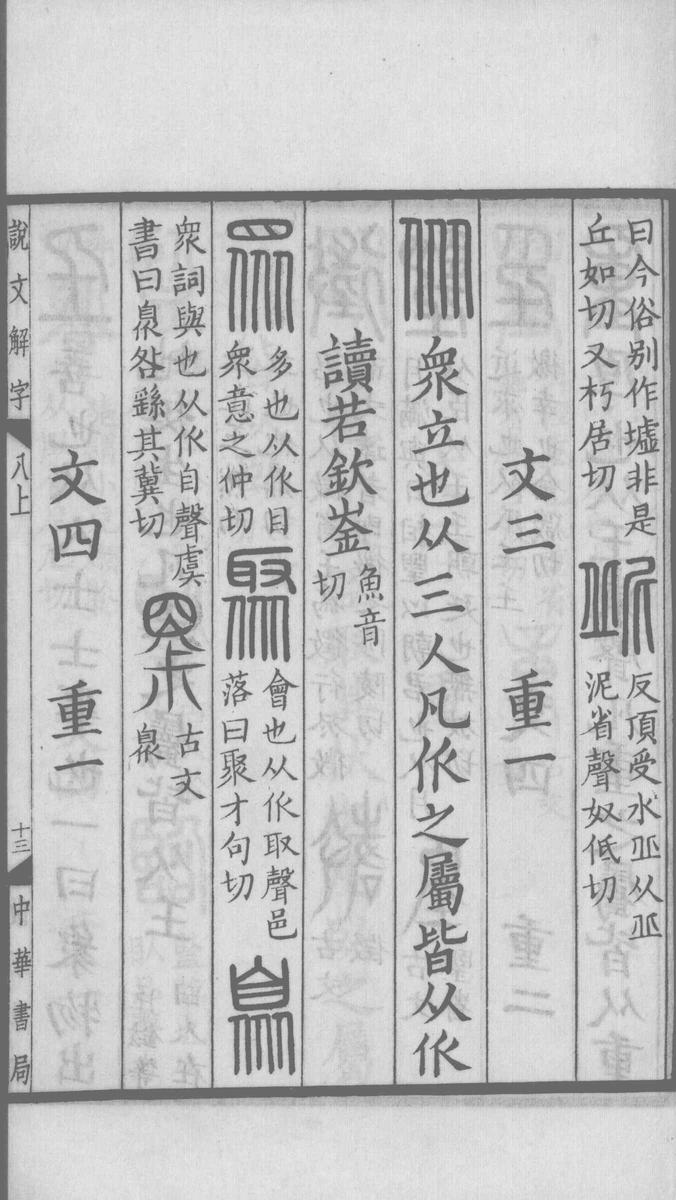 曰今俗別作墟非是
丘如切又朽居切
𡰥
反頂受水丠从丠
泥省聲奴低切
文三 重一
㐺 衆立也从三人凡㐺之屬皆从㐺
讀若欽崟
魚音
切
眾
多也从㐺目
衆意之仲切
聚
會也从㐺取聲邑
落曰聚才句切
臮
衆詞與也从㐺自聲虞
書曰臮咎繇其冀切
古文
臮
文四 重一
說文解字 八上 十三 中華書局